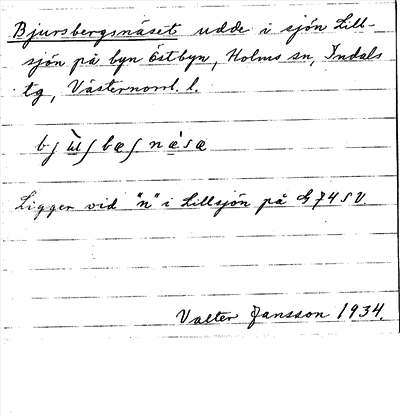 Bjursbergsnäset udde i sjön Lill-
sjön på byn Östbyn, Holms sn, Indals
tg, Västernorrl. l.
Ligger vid "n" i Lillsjön på G74SV.
Valter Jansson 1934.